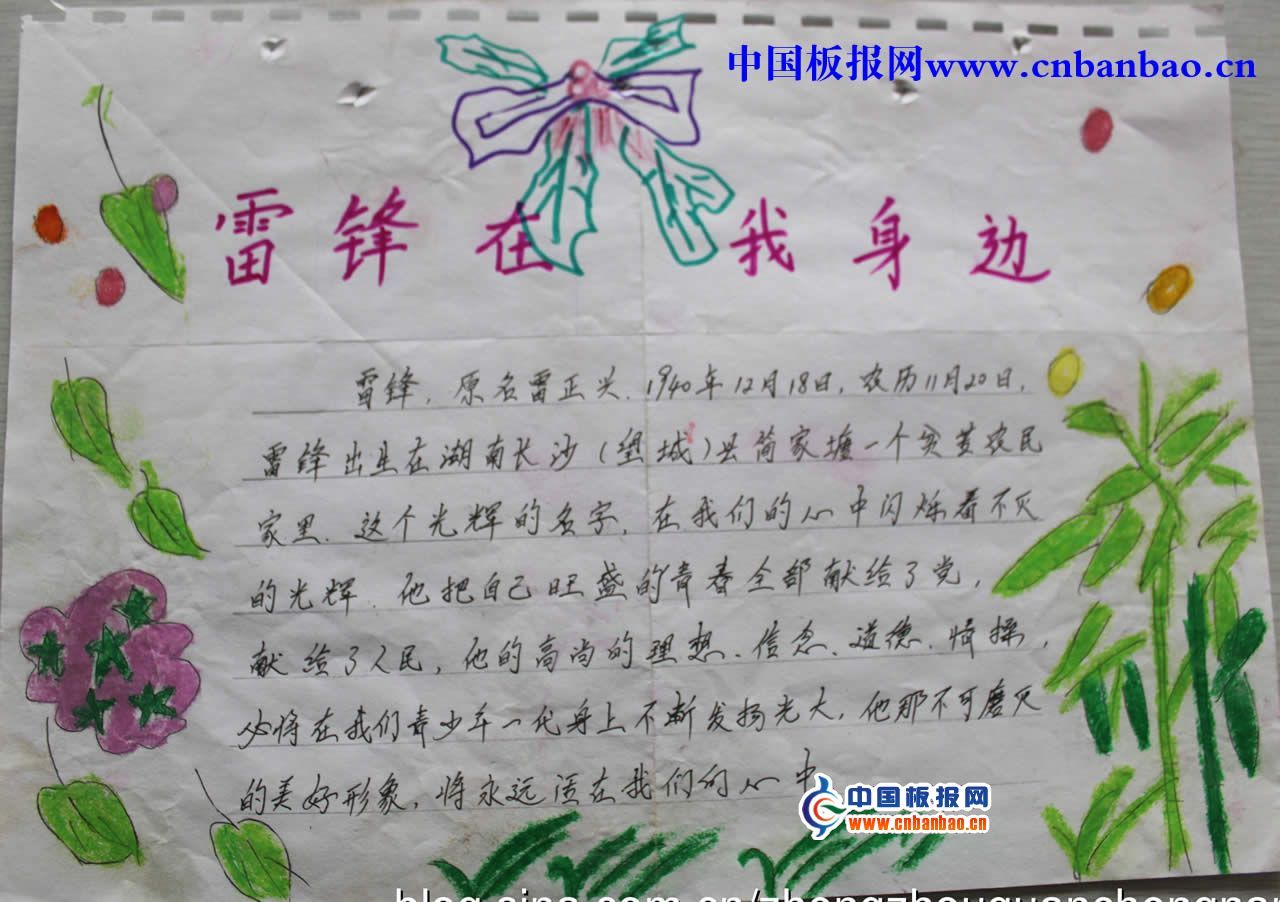 中国板报网www.cnbanbao.cn
雷锋在我身边
雷锋，原名雷正兴．1940年12月18日，农历11月20日，
雷锋出生在湖南长沙（望城）县简家塘一个贫苦农民
家里．这个光辉的名字，在我们的心中闪烁着不灭
的光辉．他把自己旺盛的青春全部献给了党，
献给了人民，他的高尚的理想、信念、道德、情操，
必将在我们青少年一代身上不断发扬光大，他那不可磨灭
的美好形象，将永远活在我们的心中
中国板报网
www.cnbanbao.cn